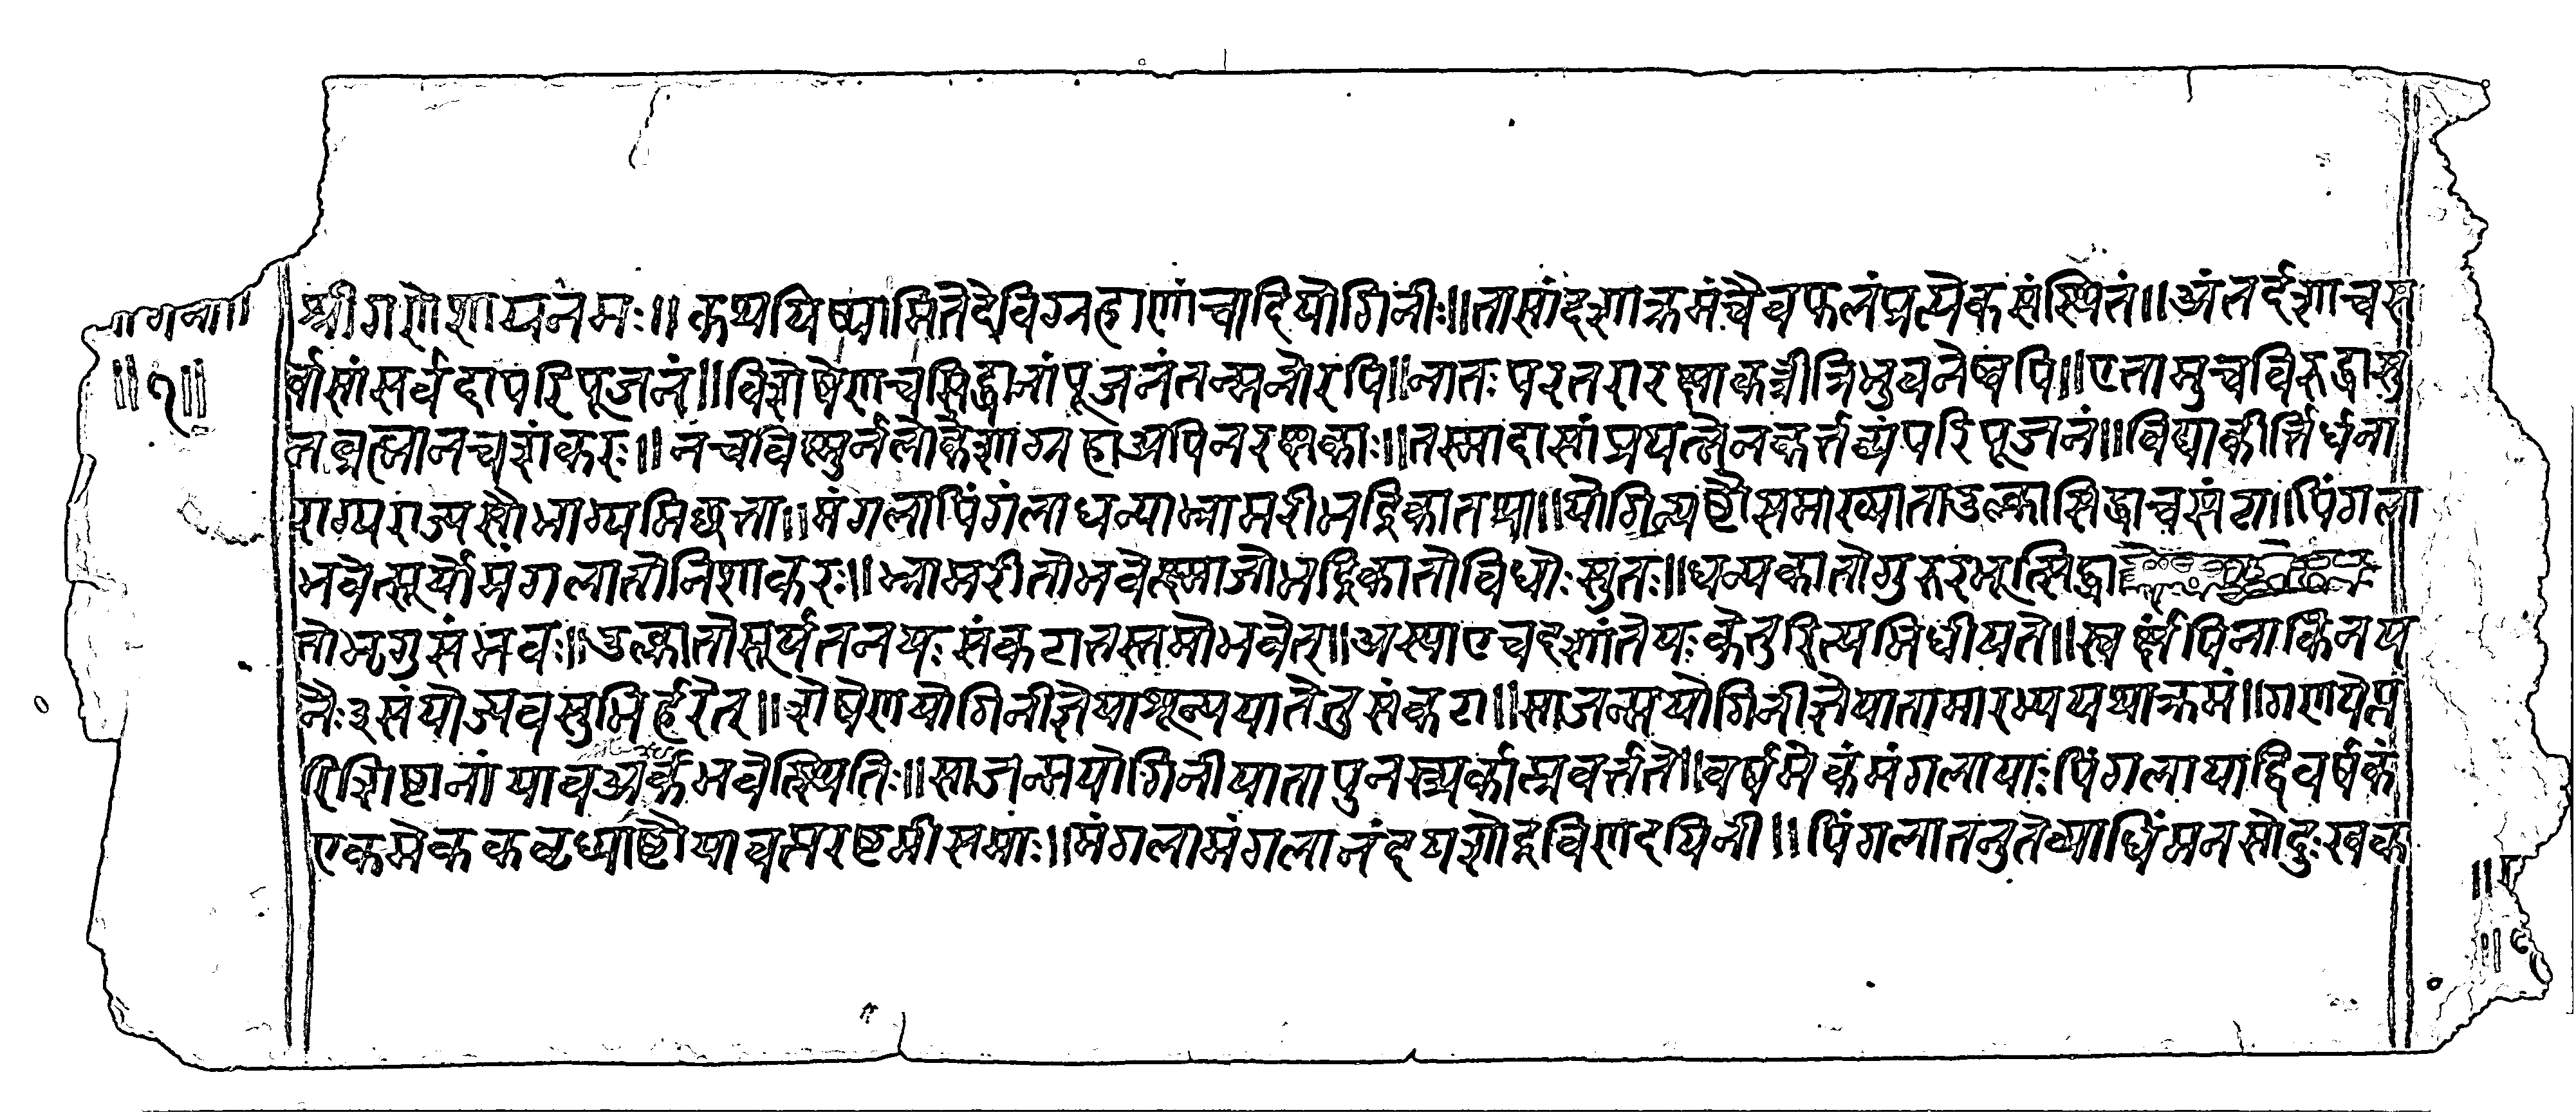 श्रीगणेशायनमः॥ कथयिष्यामितेदेविग्रहाणांचादियोगिनीः॥तासांदशाक्रमंचैवफलंप्रत्येकसंस्थितं॥अंतर्दशाचस
र्वासांसर्वदापरिपूजनं॥विशेषेणचसिद्धानांपूजनंतन्मनोरपि॥नातःपरतरारक्षाकश्चीत्रिभुवनेष्वपि॥एतासुचविरुद्धासु
नब्रह्मानचशंकरः॥नचविष्णुर्नलोकेशाग्रहाअपिनरक्षकाः॥तस्मादासांप्रयत्नेनकर्त्तव्यंपरिपूजनं॥विद्याकीर्त्तिर्धना
राग्यराज्यसौभाग्यमिछता॥मंगलापिंगलाधन्याभ्रामरीभद्रिकातथा॥योगिन्यष्टौसमाख्याताउल्कासिद्धाचसंटा॥पिंगला
भवेत्सूर्योमंगलातोनिशाकरः॥भ्रामरीतोभवेत्क्ष्माजोभद्रिकातोविधोःसुतः॥धन्यकातोगुरुरभूत्सिद्धा
तोभृगुसंभवः॥उल्कातोसूर्यतनयःसंकटातस्तमोभवेत्॥अस्याएवदशांतेयःकेतुरित्यभिधीयते॥स्वर्क्षंपिनाकिनय
नैः३संयोज्यवसुभिर्हरेत्॥शेषेणयोगिनीज्ञेयाशून्यपातेतुसंकटा॥साजन्मयोगिनीज्ञेयातामारभ्ययथाक्रमं॥गणयेत्प
रिशिष्टानांयावअर्कभवेत्स्थितिः॥साजन्मयोगिनीयातापुनरप्यर्कात्प्रवर्त्तते॥वर्षमेकंमंगलायाःपिंगलायाद्विवर्षकं
एकमेककवृध्याष्टौयावत्परष्टमीसमाः॥मंगलामंगलानंदयशोद्रविणदयिनी॥पिंगलातनुतेव्याधिंमनसोदुःखक
॥१॥